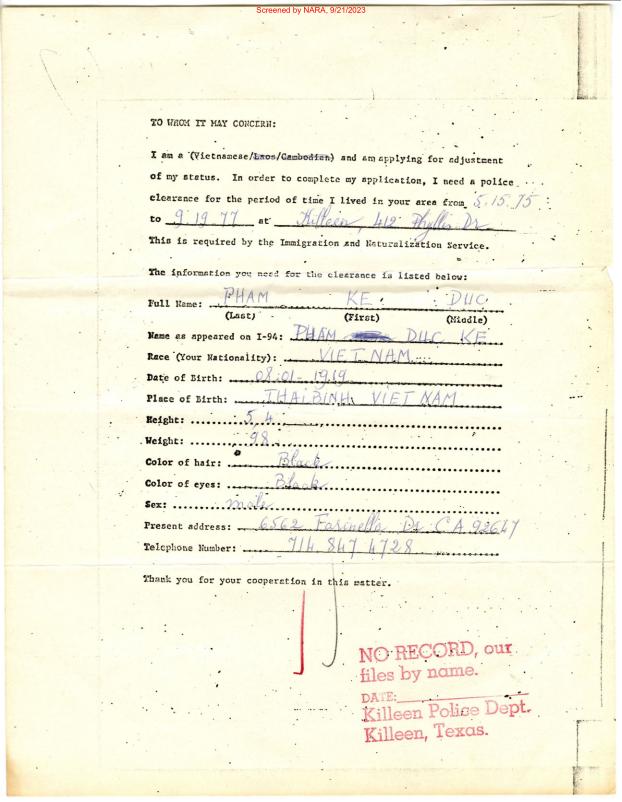 Screened by NARA, 9/21/2023
TO WHOM IT MAY CONCERN:
I am a (Vietnamese/Laos/Cambodian) and am applying for adjustment
of my status. In order to complete my application, I need a police
clearance for the period of time I lived in your area from 5.15.75
to 9.19.77 at Killeen, 412 Phyllis Dr.
This is required by the Immigration and Naturalization Service.
The information you need for the clearance is listed below:
Full Name: PHAM KE DUC
(Last) (First) (Middle)
Name as appeared on I-94: PHAM DUC KE
Race (Your Nationality): VIET NAM
Date of Birth: 08-01-1919
Place of Birth: THAIBINH VIET NAM
Height: 5,4
Weight: 98
Color of hair: Black
Color of eyes: Black
Sex: male
Present address: 6562 Farinella Dr CA 92647
Telephone Number: 714 847 4728
Thank you for your cooperation in this matter.
NO RECORD, our
files by name.
DATE:
Killeen Police Dept.
Killeen, Texas.